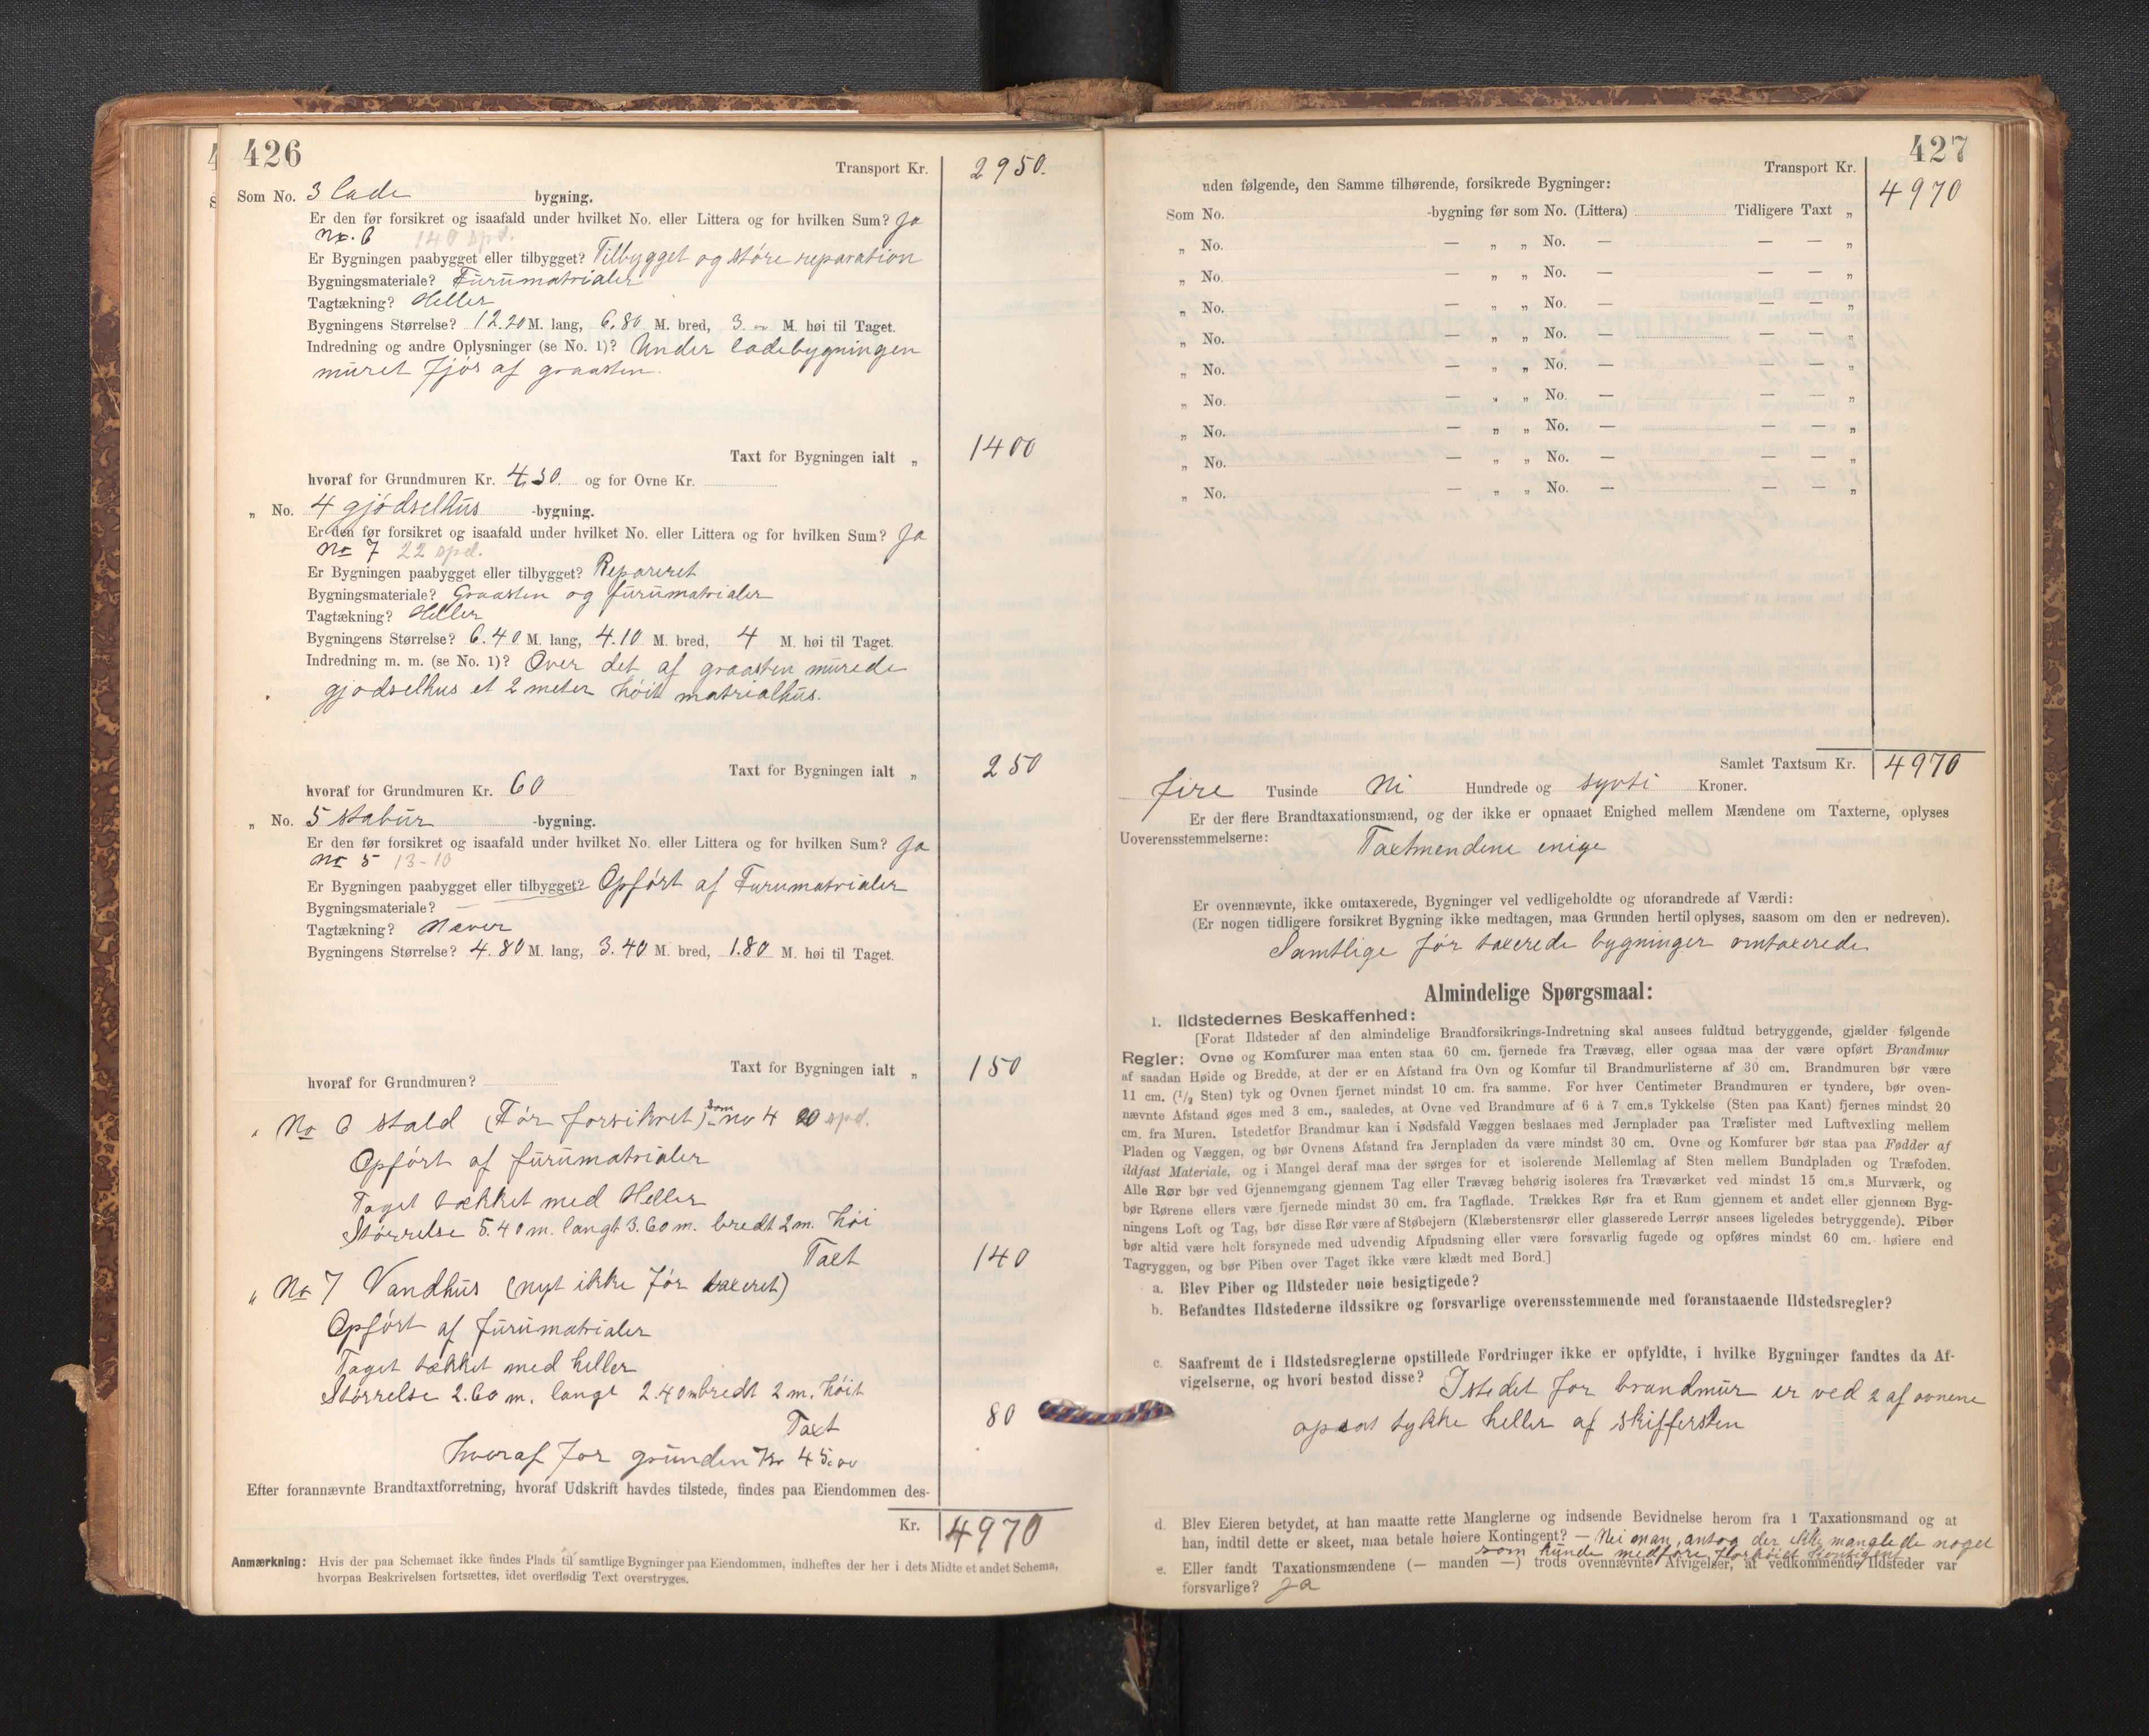 426
Transport Kr. 2950.
Som No. 3 lade bygning.
Er den før forsikret og isaafald under hvilket No. eller Littera og for hvilken Sum? Ja
No. 6 140 spd.
Er Bygningen paabygget eller tilbygget? Tilbygget og støre reparation
Bygningsmateriale? Furumatrialer
Tagtækning? Heller
Bygningens Størrelse? 12.20 M. lang, 6.80 M. bred, 3.00 M. høi til Taget.
Indredning og andre Oplysninger (se No. 1)? Under ladebygningen
muret fjøs af graasten.
Taxt for Bygningen ialt „ 1400
hvoraf for Grundmuren Kr. 430. og for Ovne Kr.
„ No. 4 gjødselhus -bygning.
Er den før forsikret og isaafald under hvilket No. eller Littera og for hvilken Sum? Ja
No 7 22 spd.
Er Bygningen paabygget eller tilbygget? Repareret
Bygningsmateriale? Graasten og furumatrialer
Tagtækning? Heller
Bygningens Størrelse? 6.40 M. lang, 4.10 M. bred, 4 M. høi til Taget.
Indredning m. m. (se No. 1)? Over det af graasten murede
gjødselhus et 2 meter høit matrialhus.
Taxt for Bygningen ialt „ 250
hvoraf for Grundmuren Kr. 60
„ No. 5 stabur -bygning.
Er den før forsikret og isaafald under hvilket No. eller Littera og for hvilken Sum? Ja
No 5 13-10
Er Bygningen paabygget eller tilbygget? Opført af Furumatrialer
Bygningsmateriale? —
Tagtækning? Næver
Bygningens Størrelse? 4.80 M. lang, 3.40 M. bred, 1.80 M. høi til Taget.
Taxt for Bygningen ialt „ 150
hvoraf for Grundmuren?
„ No 6 stald (Før forsikret) som no 4 20 spd.
Opført af furumatrialer
Taget tækket med Heller
Størrelse 5.40 m. langt 3.60 m. bredt 2 m. høi
Taxt 140
„ No 7 Vandhus (nyt ikke før taxeret)
Opført af furumatrialer
Taget tækket med heller
Størrelse 2.60 m. langt 2.40 m bredt 2 m. høit
Taxt 80
hvoraf for grunden Kr 45.00
Efter forannævnte Brandtaxtforretning, hvoraf Udskrift havdes tilstede, findes paa Eiendommen des-
Kr. 4970
Anmærkning: Hvis der paa Schemaet ikke findes Plads til samtlige Bygninger paa Eiendommen, indheftes der her i dets Midte et andet Schema,
hvorpaa Beskrivelsen fortsættes, idet overflødig Text overstryges.
427
Transport Kr. 4970
uden følgende, den Samme tilhørende, forsikrede Bygninger:
Som No. -bygning før som No. (Littera) Tidligere Taxt „
„ No. — „ „ No. — — — „
„ No. — „ „ No. — — — „
„ No. — „ „ No. — — — „
„ No. — „ „ No. — — — „
„ No. — „ „ No. — — — „
„ No. — „ „ No. — — — „
„ No. — „ „ No. — — — „
„ No. — „ „ No. — — — „
„ No. — „ „ No. — — — „
Samlet Taxtsum Kr. 4970
fire Tusinde Ni Hundrede og sytti Kroner.
Er der flere Brandtaxationsmænd, og der ikke er opnaaet Enighed mellem Mændene om Taxterne, oplyses
Uoverensstemmelserne: Taxtmendene enige
Er ovennævnte, ikke omtaxerede, Bygninger vel vedligeholdte og uforandrede af Værdi:
(Er nogen tidligere forsikret Bygning ikke medtagen, maa Grunden hertil oplyses, saasom om den er nedreven).
Samtlige før taxerede bygninger omtaxerede
Almindelige Spørgsmaal:
1. Ildstedernes Beskaffenhed:
[Forat Ildsteder af den almindelige Brandforsikrings-Indretning skal ansees fuldtud betryggende, gjælder følgende
Regler: Ovne og Komfurer maa enten staa 60 cm. fjernede fra Trævæg, eller ogsaa maa der være opført Brandmur
af saadan Høide og Bredde, at der er en Afstand fra Ovn og Komfur til Brandmurlisterne af 30 cm. Brandmuren bør være
11 cm. (1/2 Sten) tyk og Ovnen fjernet mindst 10 cm. fra samme. For hver Centimeter Brandmuren er tyndere, bør oven-
nævnte Afstand øges med 3 cm., saaledes, at Ovne ved Brandmure af 6 à 7 cm.s Tykkelse (Sten paa Kant) fjernes mindst 20
cm. fra Muren. Istedetfor Brandmur kan i Nødsfald Væggen beslaaes med Jernplader paa Trælister med Luftvexling mellem
Pladen og Væggen, og bør Ovnens Afstand fra Jernpladen da være mindst 30 cm. Ovne og Komfurer bør staa paa Fødder af
ildfast Materiale, og i Mangel deraf maa der sørges for et isolerende Mellemlag af Sten mellem Bundpladen og Træfoden.
Alle Rør bør ved Gjennemgang gjennem Tag eller Trævæg behørig isoleres fra Træværket ved mindst 15 cm.s Murværk, og
bør Rørene ellers være fjernede mindst 30 cm. fra Tagflade. Trækkes Rør fra et Rum gjennem et andet eller gjennem Byg-
ningens Loft og Tag, bør disse Rør være af Støbejern (Klæberstensrør eller glasserede Lerrør ansees ligeledes betryggende). Piber
bør altid være helt forsynede med udvendig Afpudsning eller være forsvarlig fugede og opføres mindst 60 cm. høiere end
Tagryggen, og bør Piben over Taget ikke være klædt med Bord.]
a. Blev Piber og Ildsteder nøie besigtigede?
b. Befandtes Ildstederne ildssikre og forsvarlige overensstemmende med foranstaaende Ildstedsregler?
c. Saafremt de i Ildstedsreglerne opstillede Fordringer ikke er opfyldte, i hvilke Bygninger fandtes da Af-
vigelserne, og hvori bestod disse? Istedet for brandmur er ved 2 af ovnene
opsat tykke heller af skiffersten
d. Blev Eieren betydet, at han maatte rette Manglerne og indsende Bevidnelse herom fra 1 Taxationsmand og at
han, indtil dette er skeet, maa betale høiere Kontingent? — Nei man antog der ikke manglede noget
som kunde medføre forhøiet kontigent
e. Eller fandt Taxationsmændene (— manden —) trods ovennævnte Afvigelser, at vedkommende Ildsteder var
forsvarlige? Ja